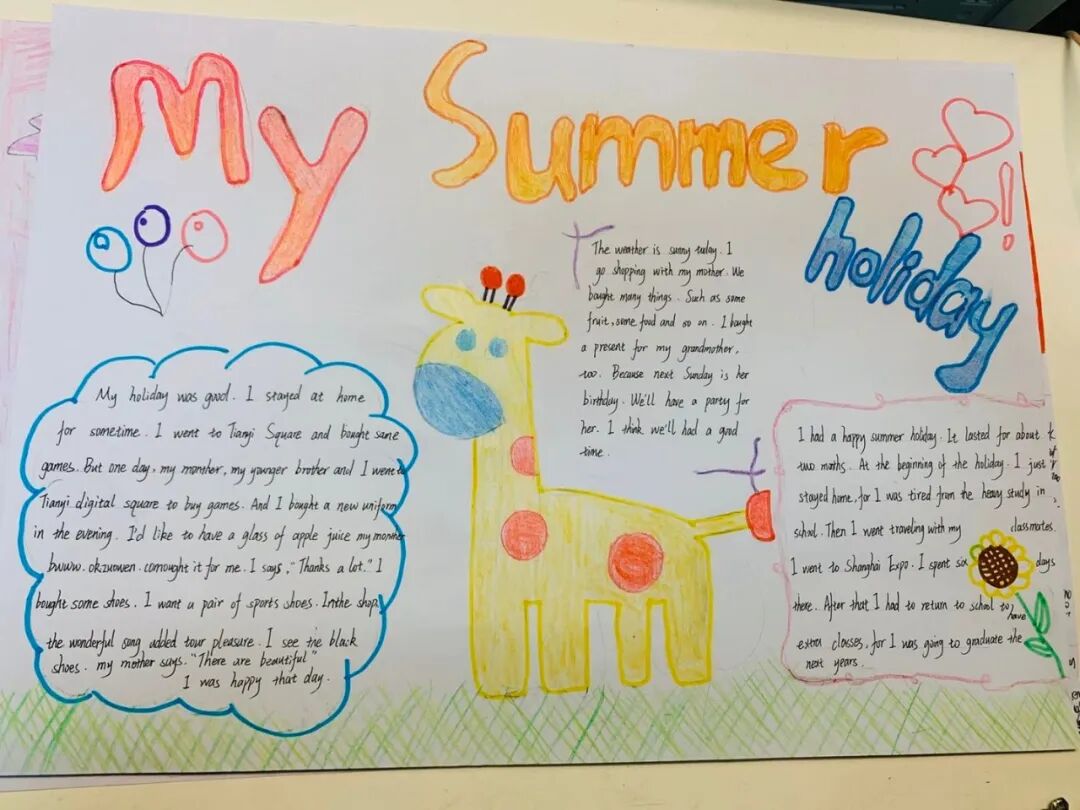 My Summer
holiday!
The weather is sunny today. I
go shopping with my mother. We
bought many things. Such as some
fruit, some food and so on. I bought
a present for my grandmother,
too. Because next Sunday is her
birthday. We'll have a party for
her. I think we'll had a good
time.
My holiday was good. I stayed at home
for sometime. I went to Tianyi Square and bought same
games. But one day, my monther, my younger brother and I went to
Tianyi digital square to buy games. And I bought a new uniform
in the evening. I'd like to have a glass of apple juice my monther
bwww.okzuowen.comought it for me. I says, "Thanks a lot." I
bought some shoes. I want a pair of sports shoes. Inthe shop,
the wonderful song added tour pleasure. I see the black
shoes. my mother says. "There are beautiful"
I was happy that day.
I had a happy summer holiday. It lasted for about
two moths. At the beginning of the holiday. I just
stayed home, for I was tired from the heavy study in
school. Then I went traveling with my classmates.
I went to Shanghai Expo. I spent six days
there. After that I had to return to school to have
extra classes, for I was going to graduate the
next years.